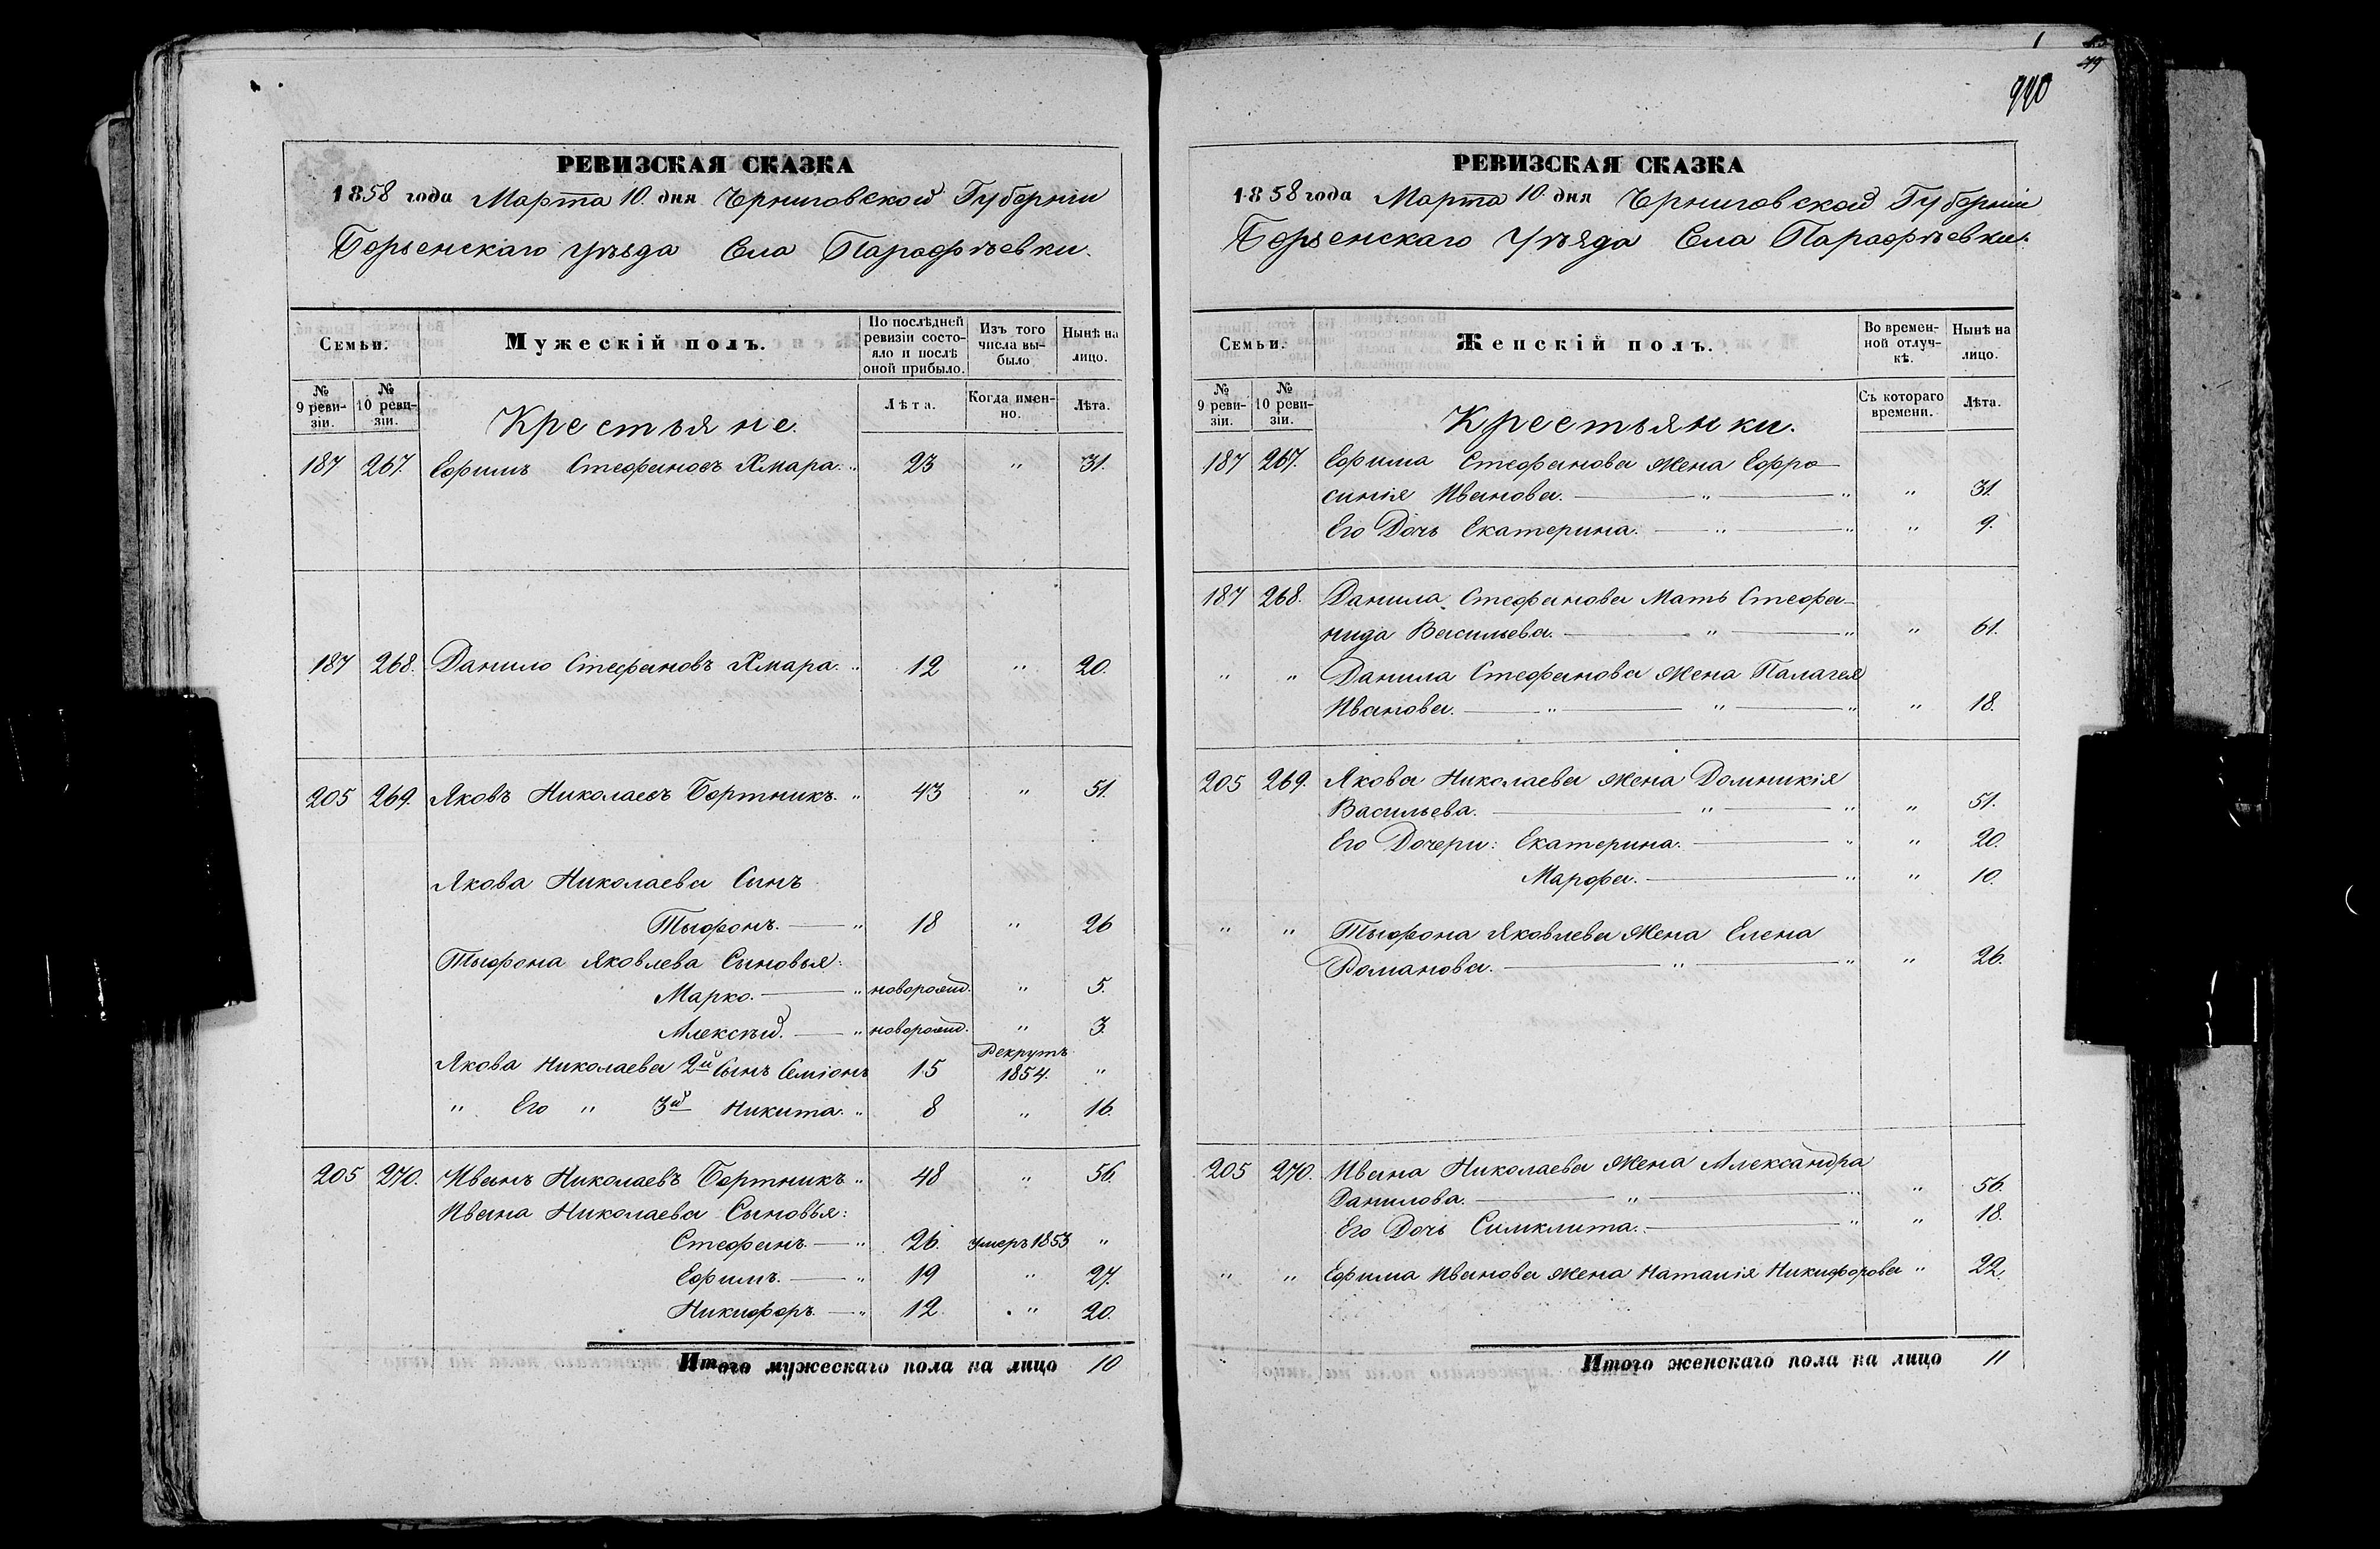 РЕВИЗСКАЯ СКАЗКА
1858 года Марта 10. дня Черниговской Губерніи
Борзенскаго уѣзда Села Парафѣевки.
Семьи.
Мужескій полъ.
По послѣдней ревизіи состояло и послѣ оной прибыло.
Изъ того числа выбыло
Нынѣ на лицо.
№ 9 ревизіи.
№ 10 ревизіи.
Крестьяне.
Лѣта.
Когда именно.
Лѣта.
187 267. Ефимъ Стефановъ Хмара. " 23 " 31.
187 268. Данило Стефановъ Хмара. " 12 " 20.
205 269. Яковъ Николаевъ Бортникъ. " 43 " 51.
Якова Николаева Сынъ
Тыфонъ. — " 18 " 26
Тыфона Яковлева Сыновья:
Марко. — " новорожд. " 5.
Алексѣй. — " новорожд. " 3.
Рекрутъ
Якова Николаева 2й Сынъ Семіонъ 15 1854. "
" Его " 3й Никита. " 8 " 16.
205 270. Иванъ Николаевъ Бортникъ " 48 " 56.
Ивана Николаева Сыновья:
Стефанъ. — " 26. умеръ 1853 "
Ефимъ. — " 19 " 27.
Никифоръ. — " 12 " 20.
Итого мужескаго пола на лицо 10
1
79
990
РЕВИЗСКАЯ СКАЗКА
1858 года Марта 10. дня Черниговской Губерніи
Борзенскаго Уѣзда Села Парафѣевки.
Семьи.
Женскій полъ.
Во временной отлучкѣ.
Нынѣ на лицо.
№ 9 ревизіи.
№ 10 ревизіи.
Крестьянки.
Съ котораго времени.
Лѣта.
187 267. Ефима Стефанова Жена Ефро-
синія Иванова. — " — " " 31.
Его Дочь Екатерина. — " — " " 9.
187 268. Данила Стефанова Мать Стефа-
нида Васильева. — " — " " 61.
" " Данила Стефанова Жена Палагея
Иванова. — " — " — " " 18.
205 269. Якова Николаева Жена Домникія
Васильева. — " — " " 51.
Его Дочери: Екатерина. — " " 20.
Марфа. — " " 10.
" " Тыфона Яковлева Жена Елена
Романова. — " — " " 26.
205 270. Ивана Николаева Жена Александра
Данилова. — " — " " 56.
Его Дочь Симклита. — " " 18.
" " Ефима Иванова Жена Наталія Никифорова " 22.
Итого женскаго пола на лицо 11